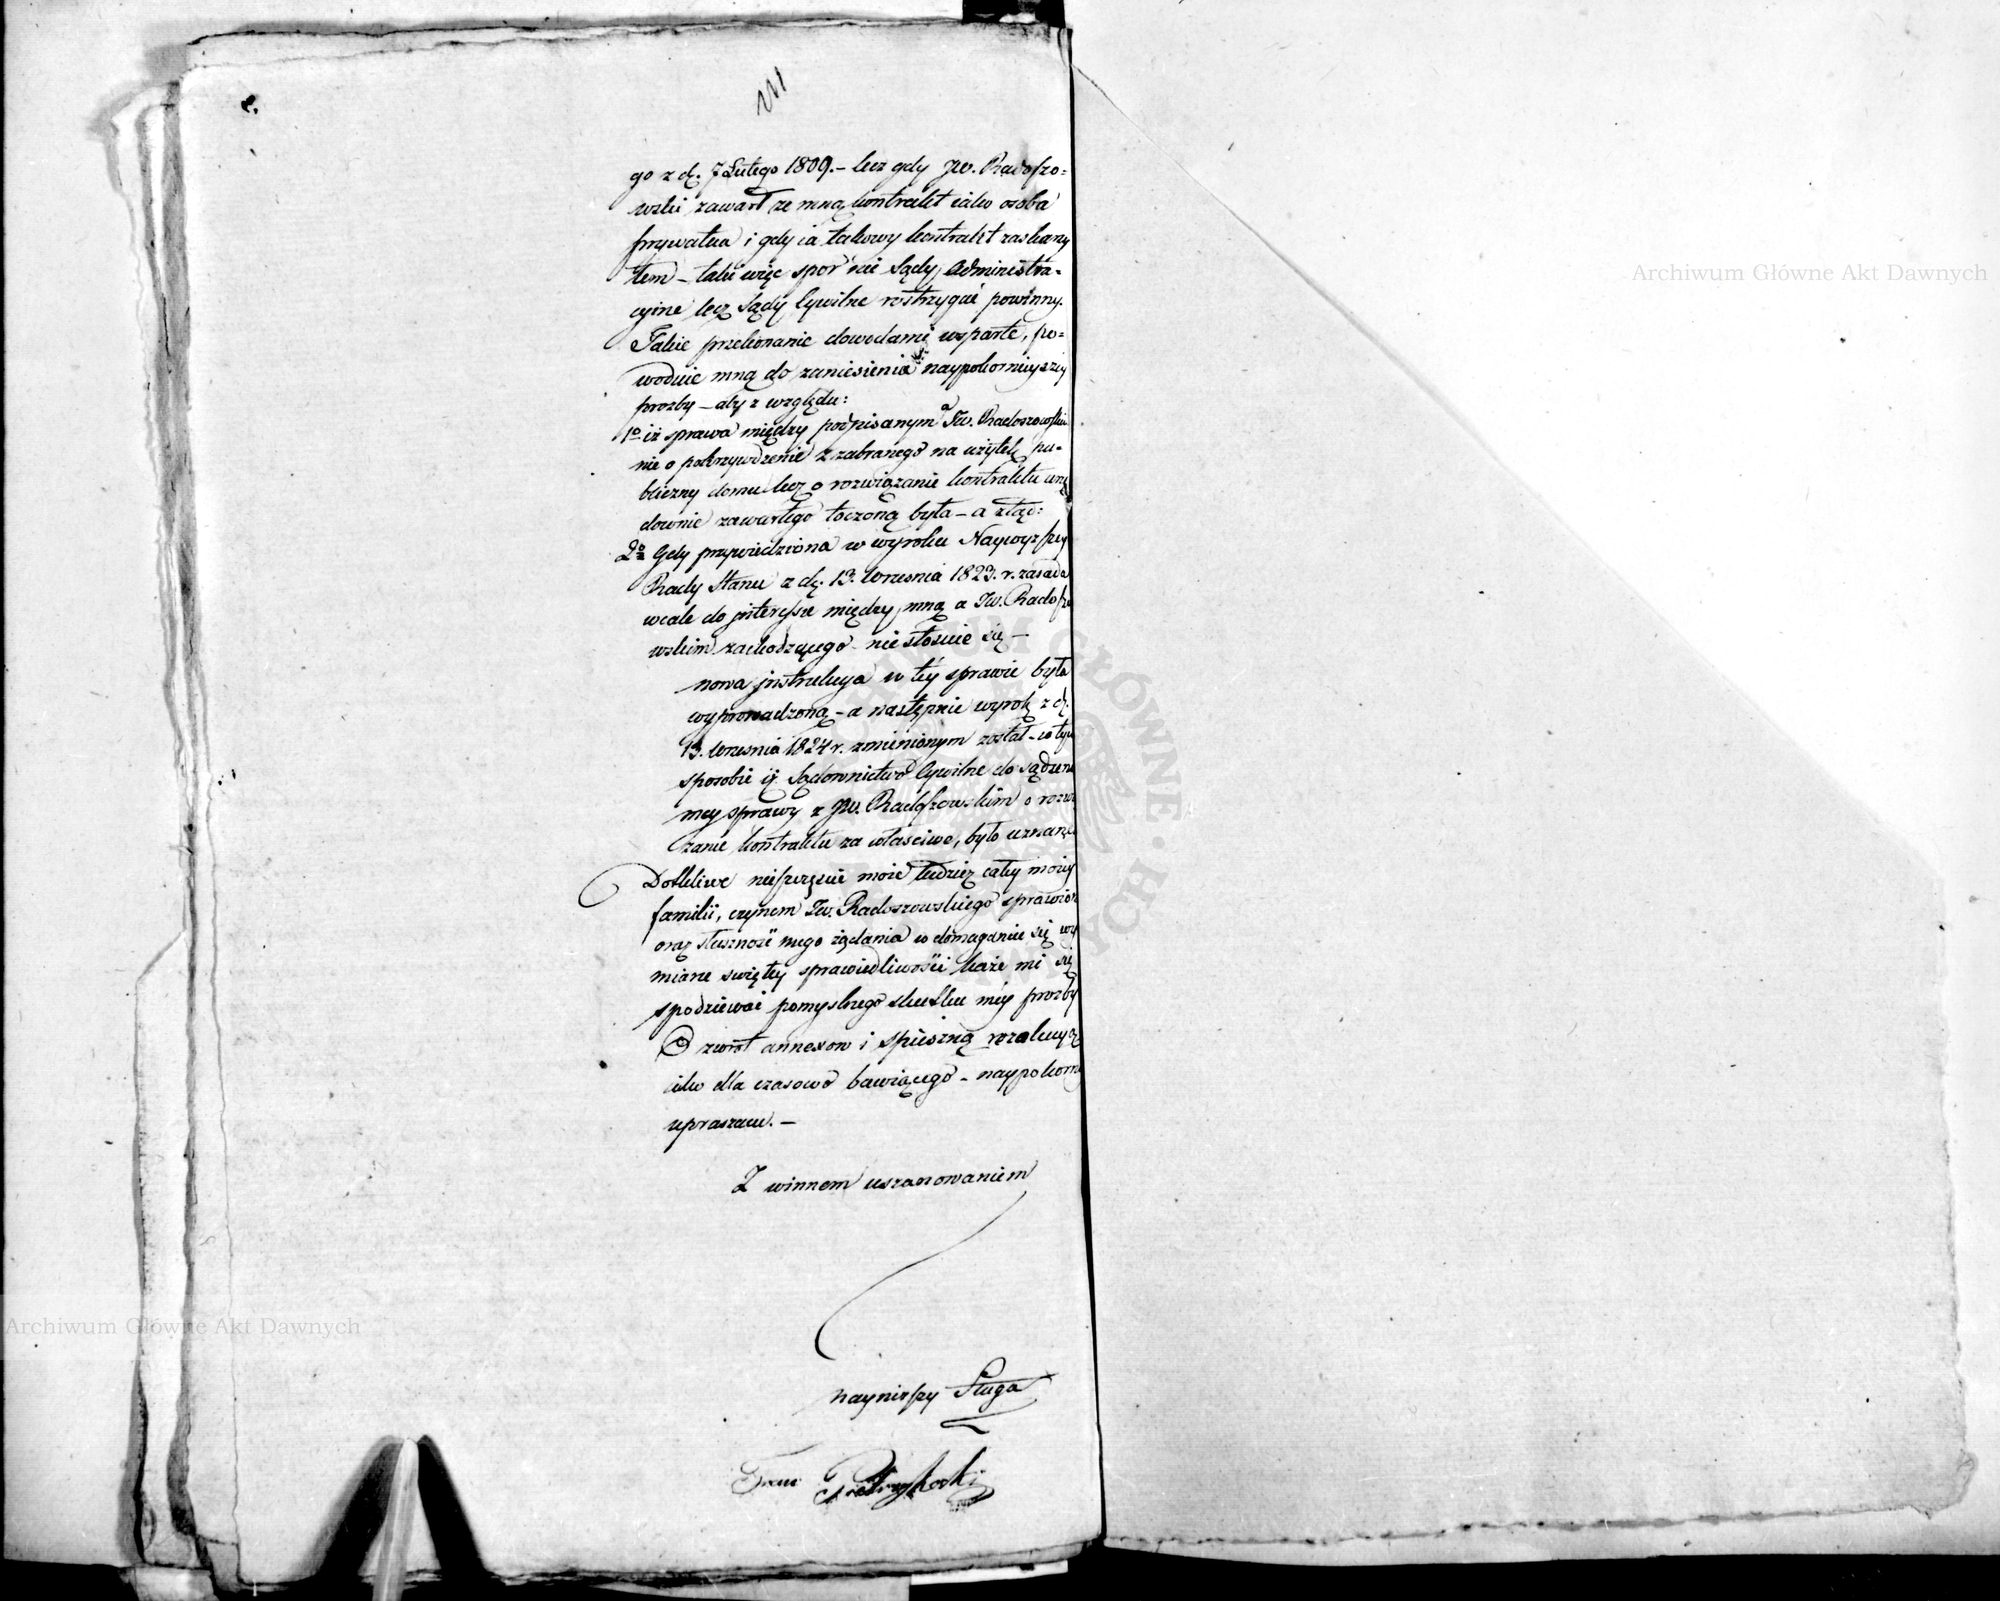 go z d. 7 Lutego 1809. – lecz gdy JW. Radoszo=
wski zawarł ze mną kontrakt iako osoba
prywatna i gdy ia takowy kontrakt zaskarży
łem – taki więc spor nie Sądy Administra=
cyine lecz Sądy Cywilne rostrzygać powinny.
Takie przekonanie dowodami wsparte, po=
woduie mną do zaniesienia naypokornieyszey
prozby – aby z względu:
1o iż sprawa między podpisanym a JW. Radoszowskim
nie o pokrzywdzenie z zabranego na użytek pu=
bliczny domu lecz o rozwiązanie kontraktu urzę
downie zawartego toczoną była – a ztąd:
2o Gdy przywiedziona w wyroku Naywyższey
Rady Stanu z d. 13. Września 1823. r. zasada
wcale do interessu między mną a JW. Radoszo
wskim zachodzącego nie stosuie się –
nowa instrukcya w tey sprawie była
wyprowadzoną – a następnie wyrok z d.
13. Września 1824 r. zmienionym został – w tym
sposobie iż Sądownictwo Cywilne do sądzenia
mey sprawy z JW. Radoszowskim o rozwią
zanie kontraktu za właściwe, było uznane
Dotkliwe nieszczęście moie tudzież całey moiey
familii, czynem JW. Radoszowskiego sprawione
oraz słuszność mego żądania w domaganiu się wy
miaru swiętey sprawiedliwości każe mi się
spodziewać pomyslnego skutku mey prozby
O zwrót annexow i spieszną rezolucyą
iako dla czasowo bawiącego – naypokorniey
upraszam. –
Z winnem uszanowaniem
nayniższy Sługa
Fran Pietrzykoski
Archiwum Główne Akt Dawnych
Archiwum Główne Akt Dawnych